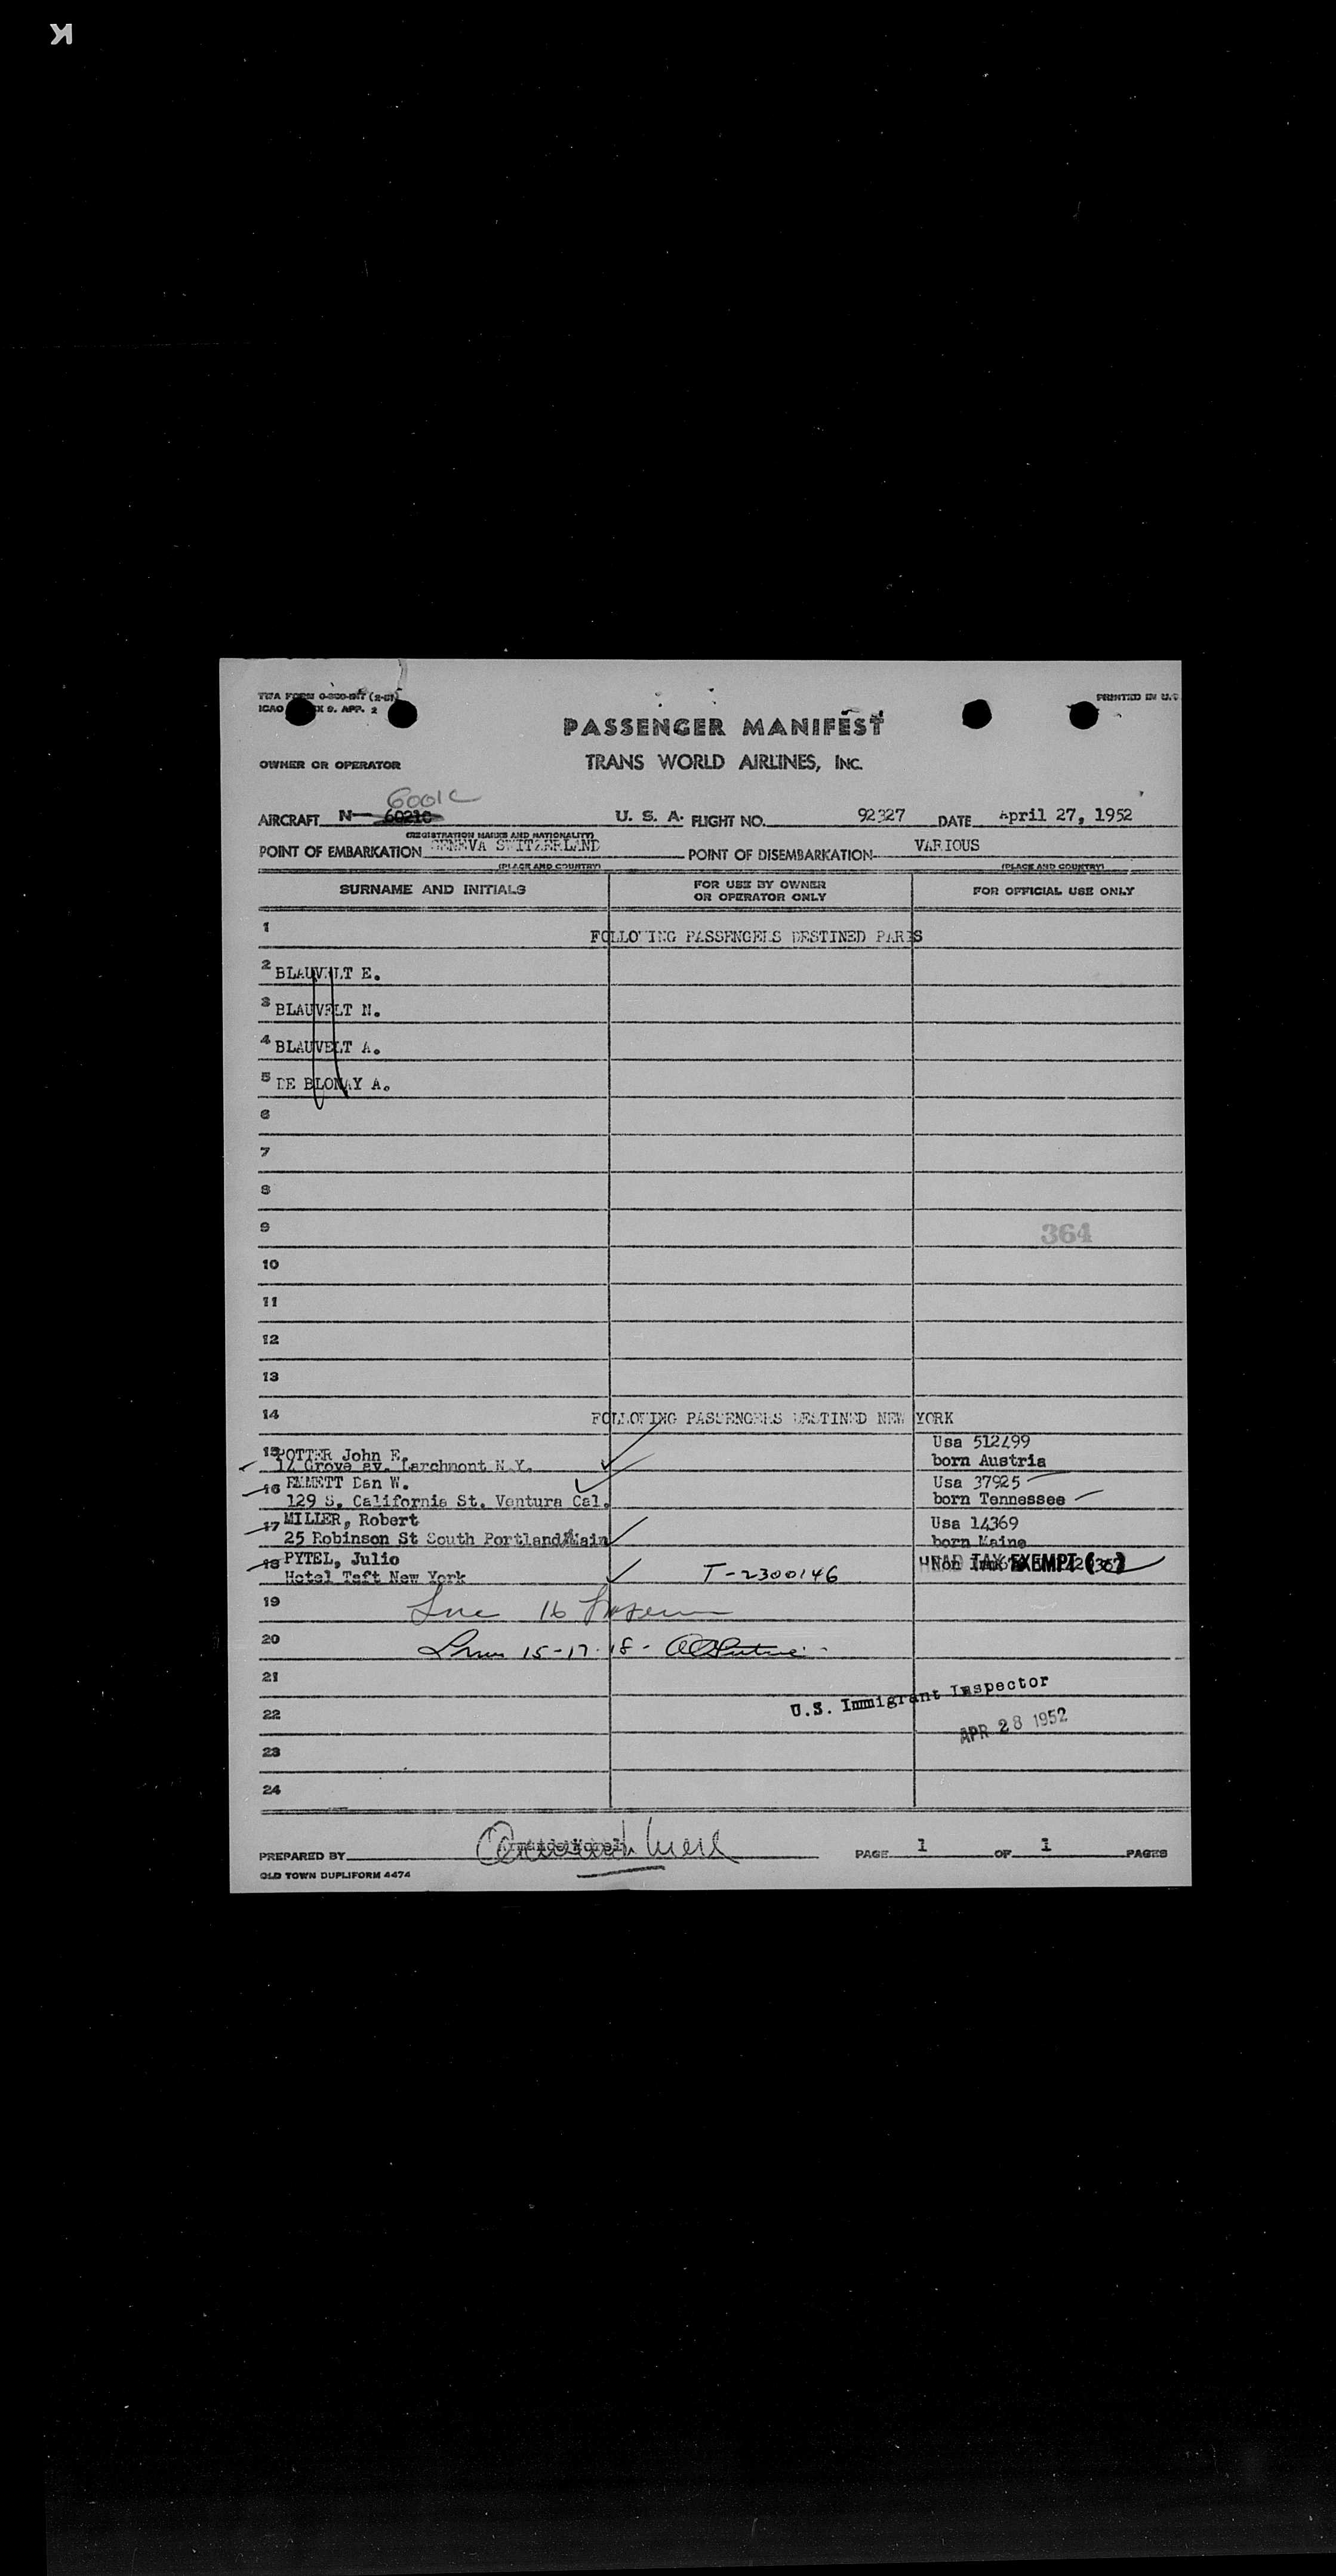 K
TWA FORM
ICAO X 9. APP. 2
PRINTED IN U.S
PASSENGER MANIFEST
OWNER OR OPERATOR
TRANS WORLD AIRLINES, INC.
6001C
AIRCRAFT N- 6021C U. S. A. FLIGHT NO. 92327 DATE April 27, 1952
(REGISTRATION MARKS AND NATIONALITY)
POINT OF EMBARKATION GENEVA SWITZERLAND POINT OF DISEMBARKATION VARIOUS
(PLACE AND COUNTRY) (PLACE AND COUNTRY)
SURNAME AND INITIALS FOR USE BY OWNER OR OPERATOR ONLY FOR OFFICIAL USE ONLY
1 FOLLOWING PASSENGERS DESTINED PARIS
2 BLAUVELT E.
3 BLAUVELT N.
4 BLAUVELT A.
5 DE BLONAY A.
6
7
8
9 364
10
11
12
13
14 FOLLOWING PASSENGERS DESTINED NEW YORK
15 POTTER John E. Usa 512499
14 Grove av. Larchmont N.Y. born Austria
16 EMMETT Dan W. Usa 37925
129 S. California St. Ventura Cal. born Tennessee
17 MILLER, Robert Usa 14369
25 Robinson St South Portland Main born Maine
18 PYTEL, Julio HEAD TAX EXEMPT
Hotel Taft New York T-2300146
19 16
20 15-17-18-
21 U.S. Immigrant Inspector
22 APR 28 1952
23
24
PREPARED BY PAGE 1 OF 1 PAGES
OLD TOWN DUPLIFORM 4474